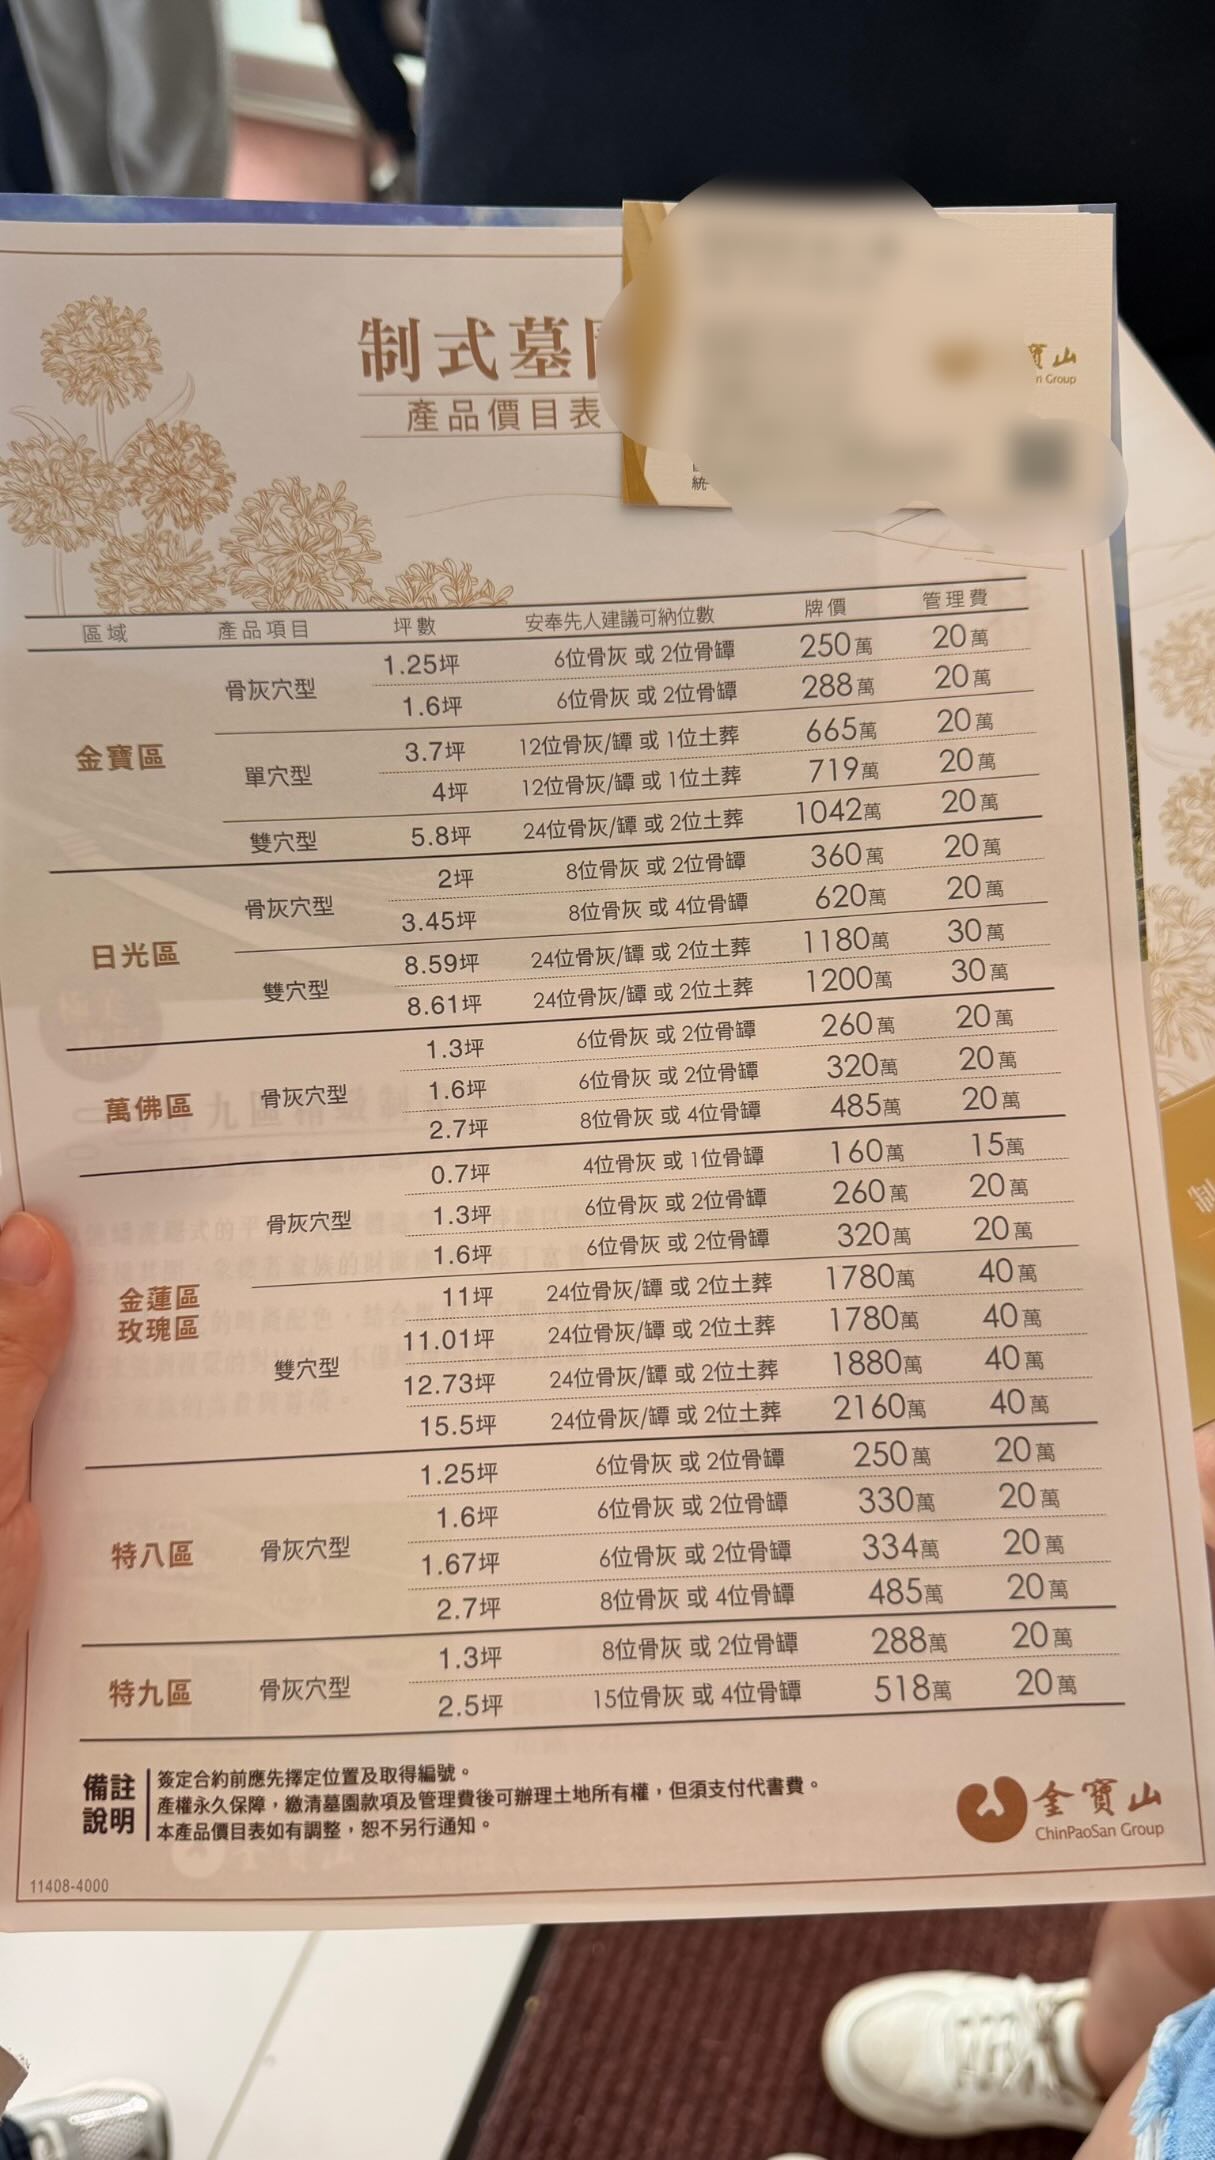 制式墓
產品價目表
寶山
n Group
統
區域 產品項目 坪數 安奉先人建議可納位數 牌價 管理費
金寶區 骨灰穴型 1.25坪 6位骨灰 或 2位骨罈 250萬 20萬
1.6坪 6位骨灰 或 2位骨罈 288萬 20萬
單穴型 3.7坪 12位骨灰/罈 或 1位土葬 665萬 20萬
4坪 12位骨灰/罈 或 1位土葬 719萬 20萬
雙穴型 5.8坪 24位骨灰/罈 或 2位土葬 1042萬 20萬
日光區 骨灰穴型 2坪 8位骨灰 或 2位骨罈 360萬 20萬
3.45坪 8位骨灰 或 4位骨罈 620萬 20萬
雙穴型 8.59坪 24位骨灰/罈 或 2位土葬 1180萬 30萬
8.61坪 24位骨灰/罈 或 2位土葬 1200萬 30萬
萬佛區 骨灰穴型 1.3坪 6位骨灰 或 2位骨罈 260萬 20萬
1.6坪 6位骨灰 或 2位骨罈 320萬 20萬
2.7坪 8位骨灰 或 4位骨罈 485萬 20萬
金蓮區 玫瑰區 骨灰穴型 0.7坪 4位骨灰 或 1位骨罈 160萬 15萬
1.3坪 6位骨灰 或 2位骨罈 260萬 20萬
1.6坪 6位骨灰 或 2位骨罈 320萬 20萬
雙穴型 11坪 24位骨灰/罈 或 2位土葬 1780萬 40萬
11.01坪 24位骨灰/罈 或 2位土葬 1780萬 40萬
12.73坪 24位骨灰/罈 或 2位土葬 1880萬 40萬
15.5坪 24位骨灰/罈 或 2位土葬 2160萬 40萬
特八區 骨灰穴型 1.25坪 6位骨灰 或 2位骨罈 250萬 20萬
1.6坪 6位骨灰 或 2位骨罈 330萬 20萬
1.67坪 6位骨灰 或 2位骨罈 334萬 20萬
2.7坪 8位骨灰 或 4位骨罈 485萬 20萬
特九區 骨灰穴型 1.3坪 8位骨灰 或 2位骨罈 288萬 20萬
2.5坪 15位骨灰 或 4位骨罈 518萬 20萬
備註說明
簽定合約前應先擇定位置及取得編號。
產權永久保障，繳清墓園款項及管理費後可辦理土地所有權，但須支付代書費。
本產品價目表如有調整，恕不另行通知。
金寶山
ChinPaoSan Group
11408-4000
制